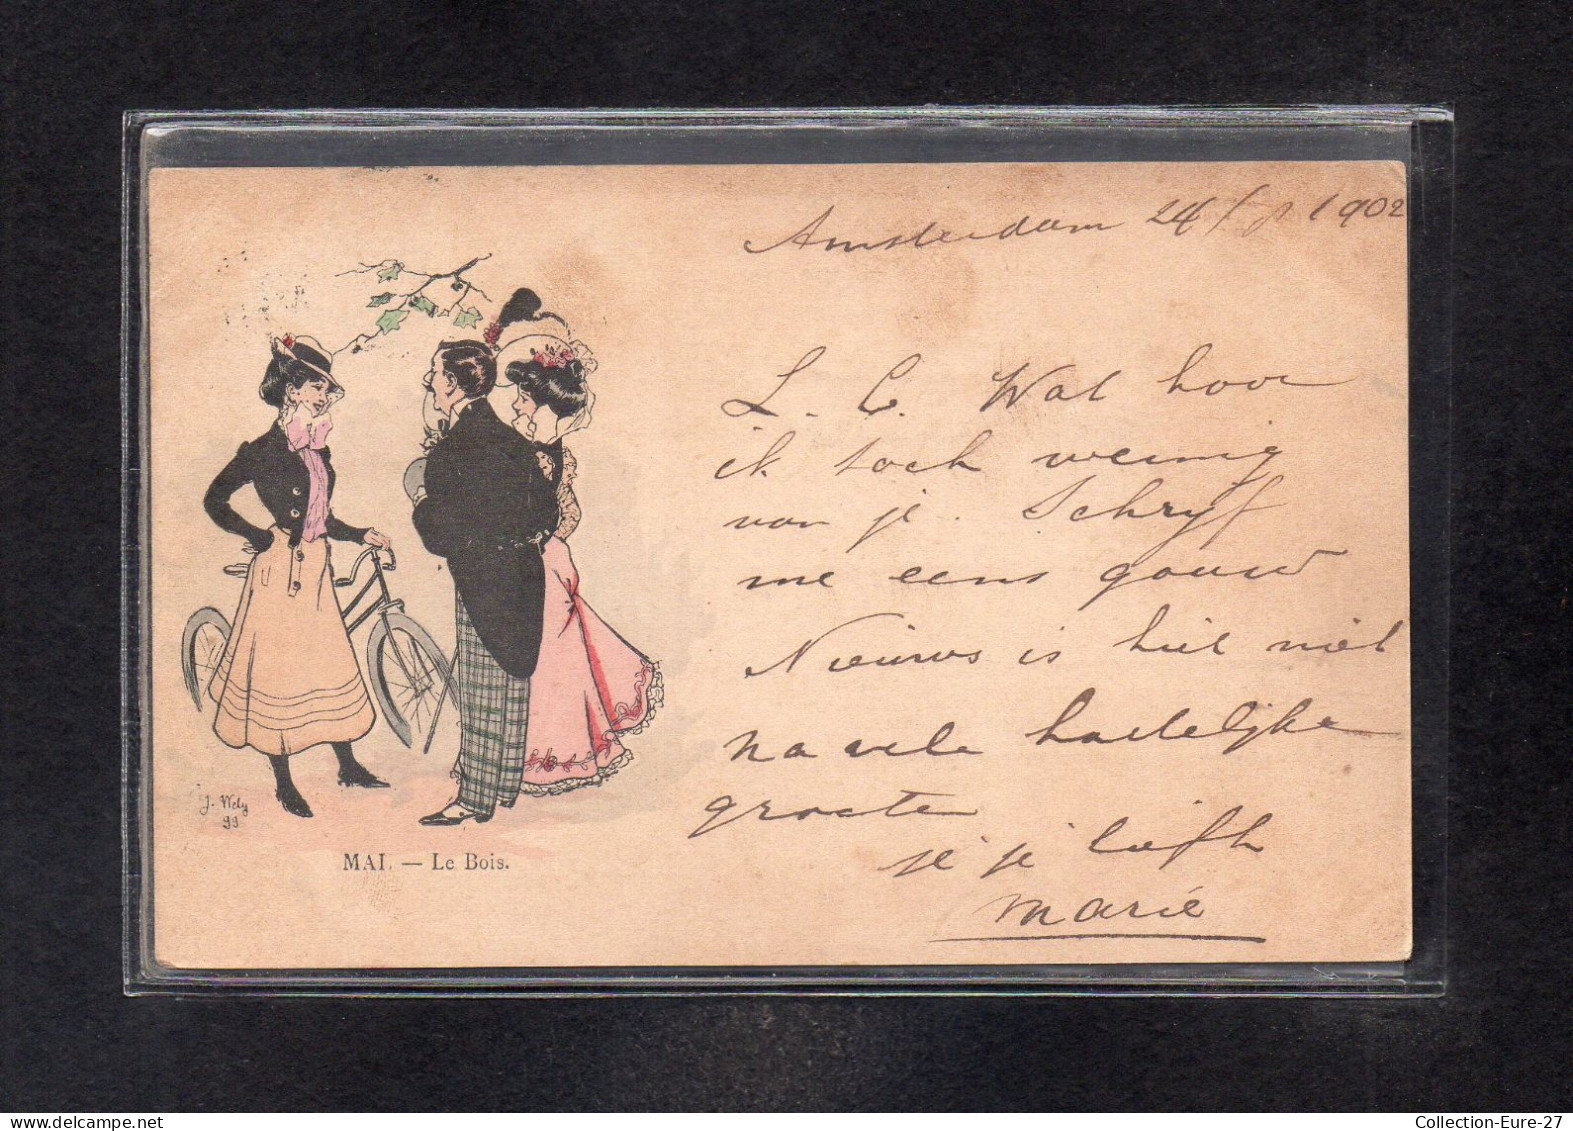 Amsterdam 24/8 1902
L. C. Wat hoor
ik toch weinig
van je. Schryf
me eens gauw
Nieuws is hier niet
na vele hartelijke
groeten
je je liefh
Marie
J. Wely
99
MAI. — Le Bois.
Collection-Eure-27